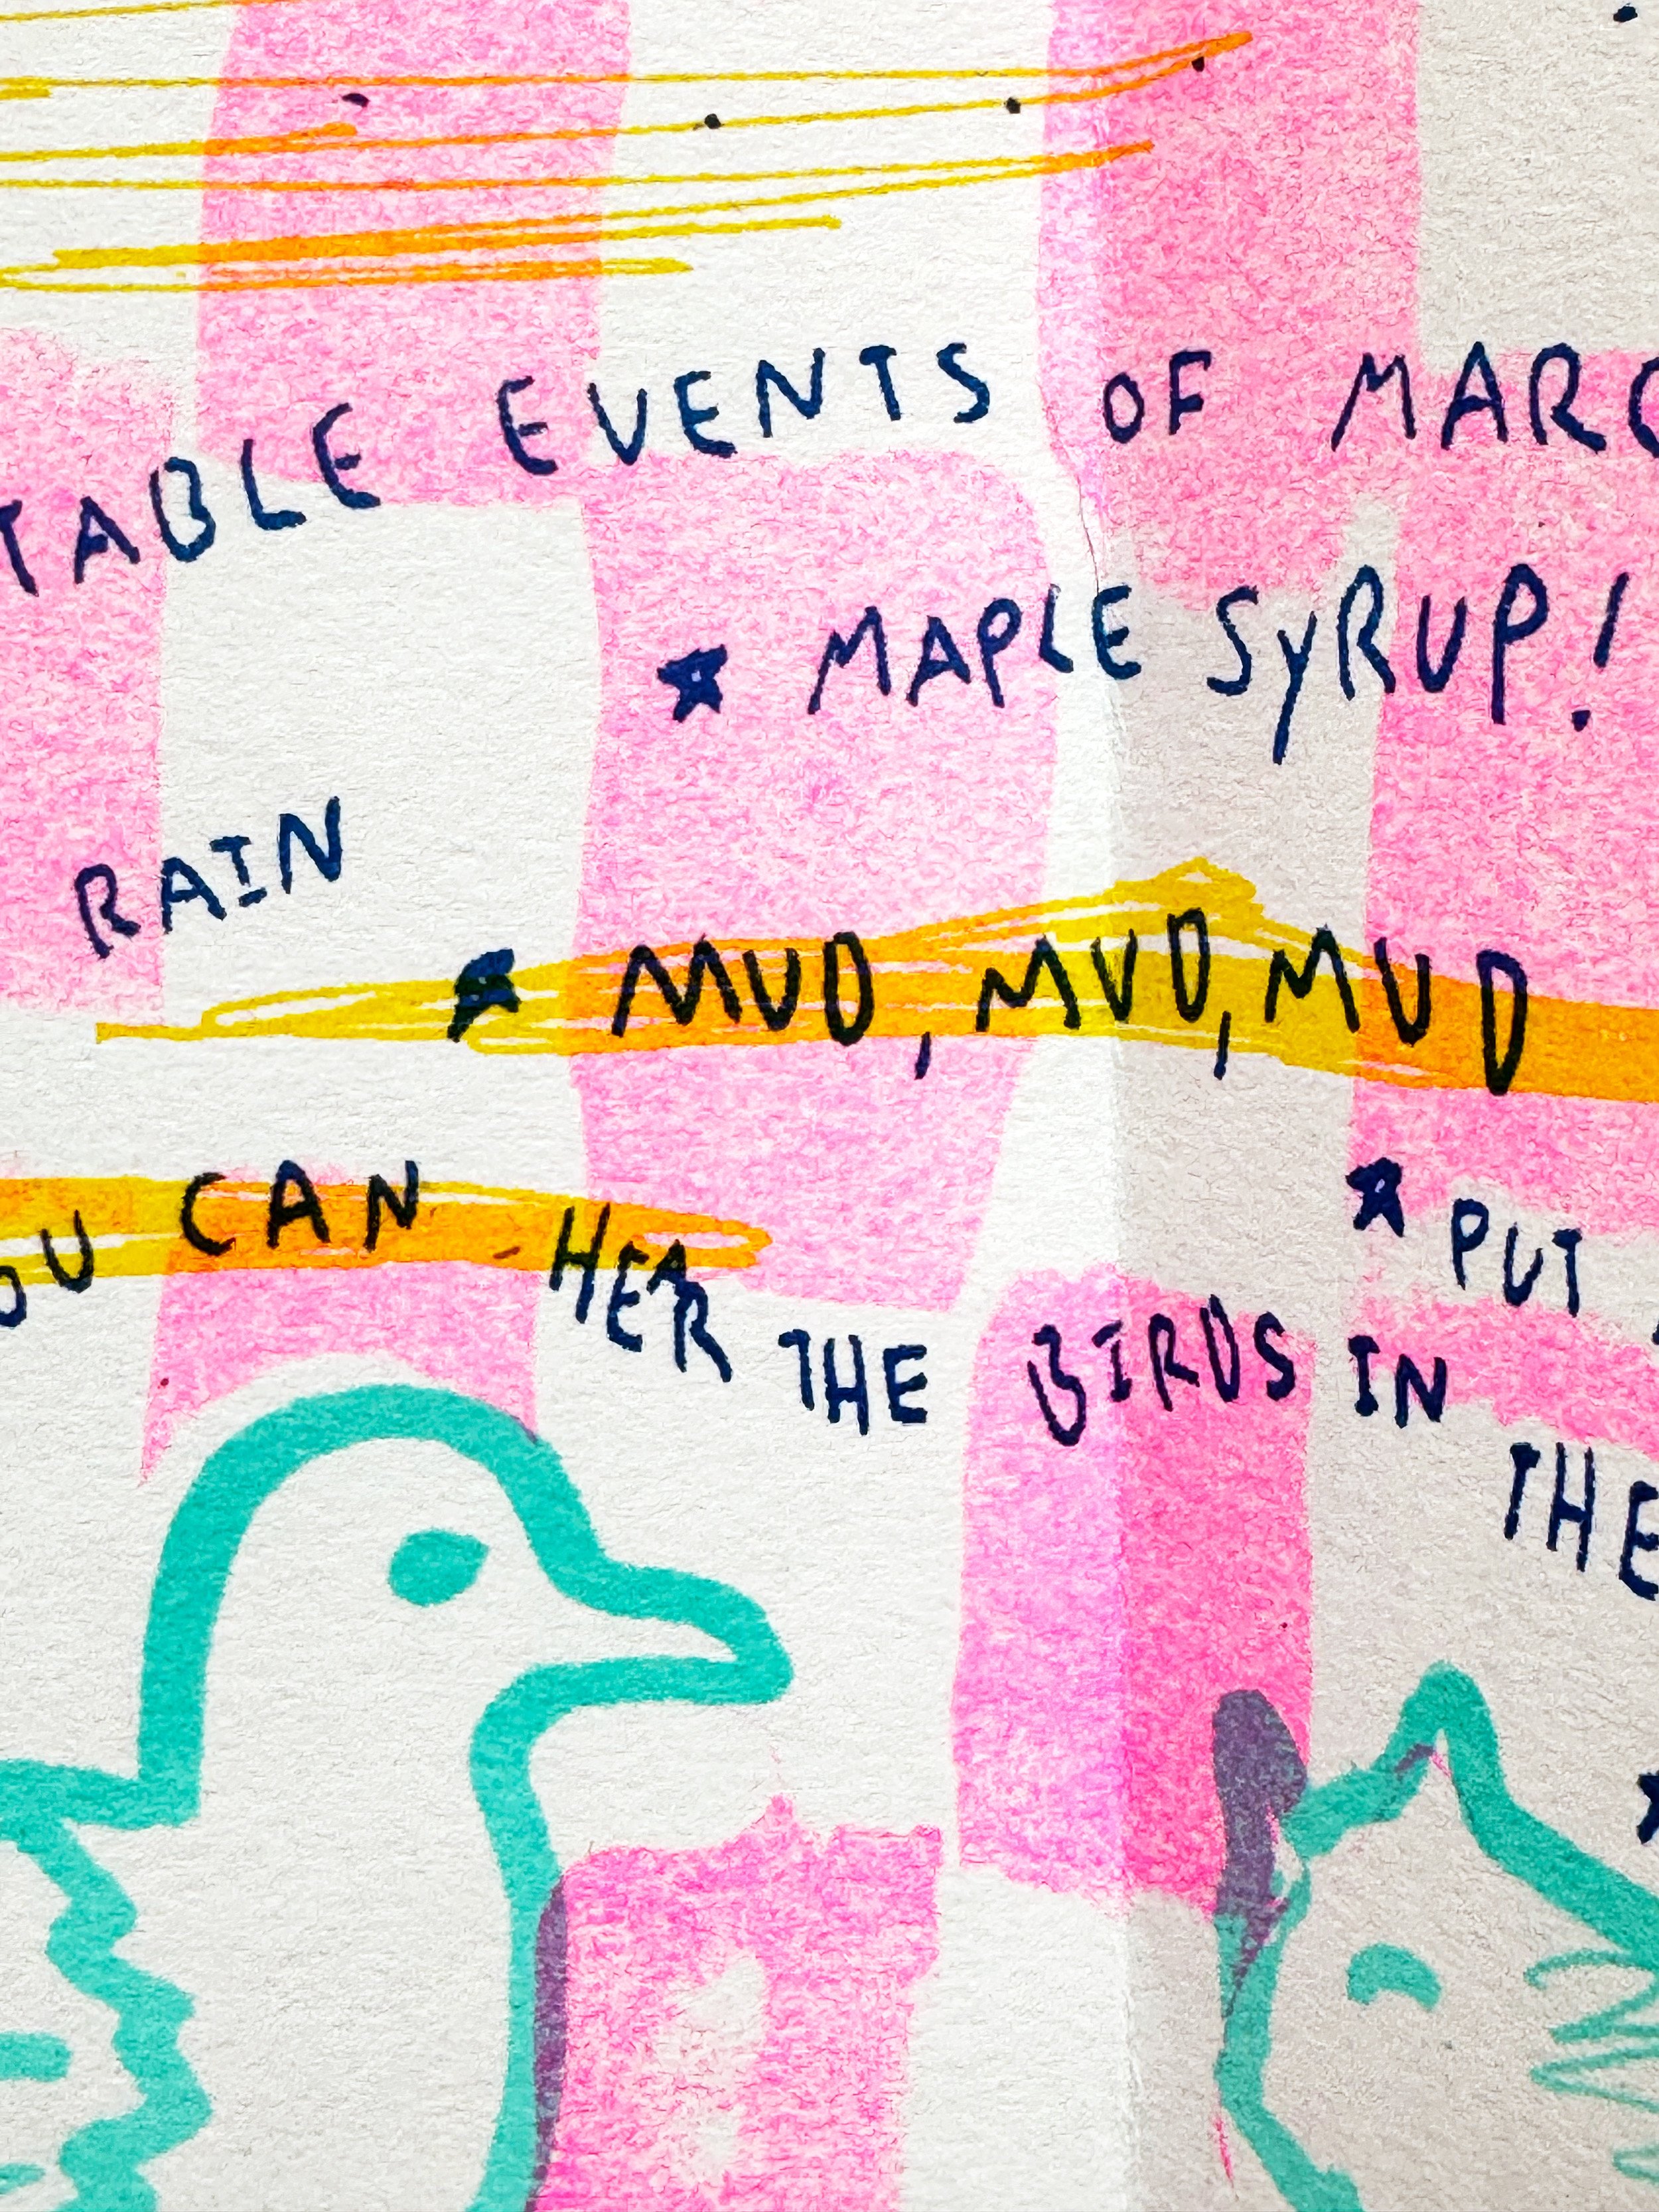 TABLE EVENTS OF MARC
★ MAPLE SYRUP!
RAIN
★ MUD, MUD, MUD
OU CAN HEAR THE BIRDS IN THE
★ PUT